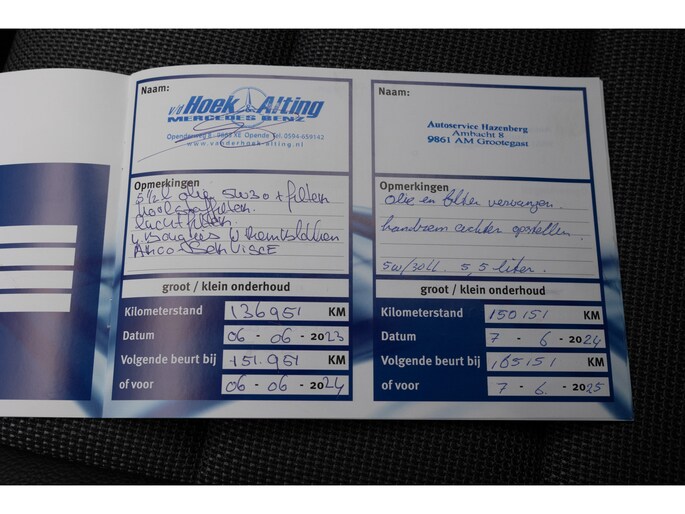 Naam:
v/d Hoek Alting
MERCEDES BENZ
Openderweg 8 - 9865 XE Opende Tel. 0594-659142
www.vanderhoek-alting.nl
Opmerkingen
5½ l olie 5W30 + filter
luchtfilter
4 Bougies
groot / klein onderhoud
Kilometerstand 136951 KM
Datum 06 - 06 - 2023
Volgende beurt bij 151.951 KM
of voor 06 - 06 - 2024
Naam:
Autoservice Hazenberg
Ambacht 8
9861 AM Grootegast
Opmerkingen
olie en filter vervangen.
handrem achter opstellen.
5W/30 LL 5,5 liter.
groot / klein onderhoud
Kilometerstand 150151 KM
Datum 7 - 6 - 2024
Volgende beurt bij 165151 KM
of voor 7 - 6 - 2025